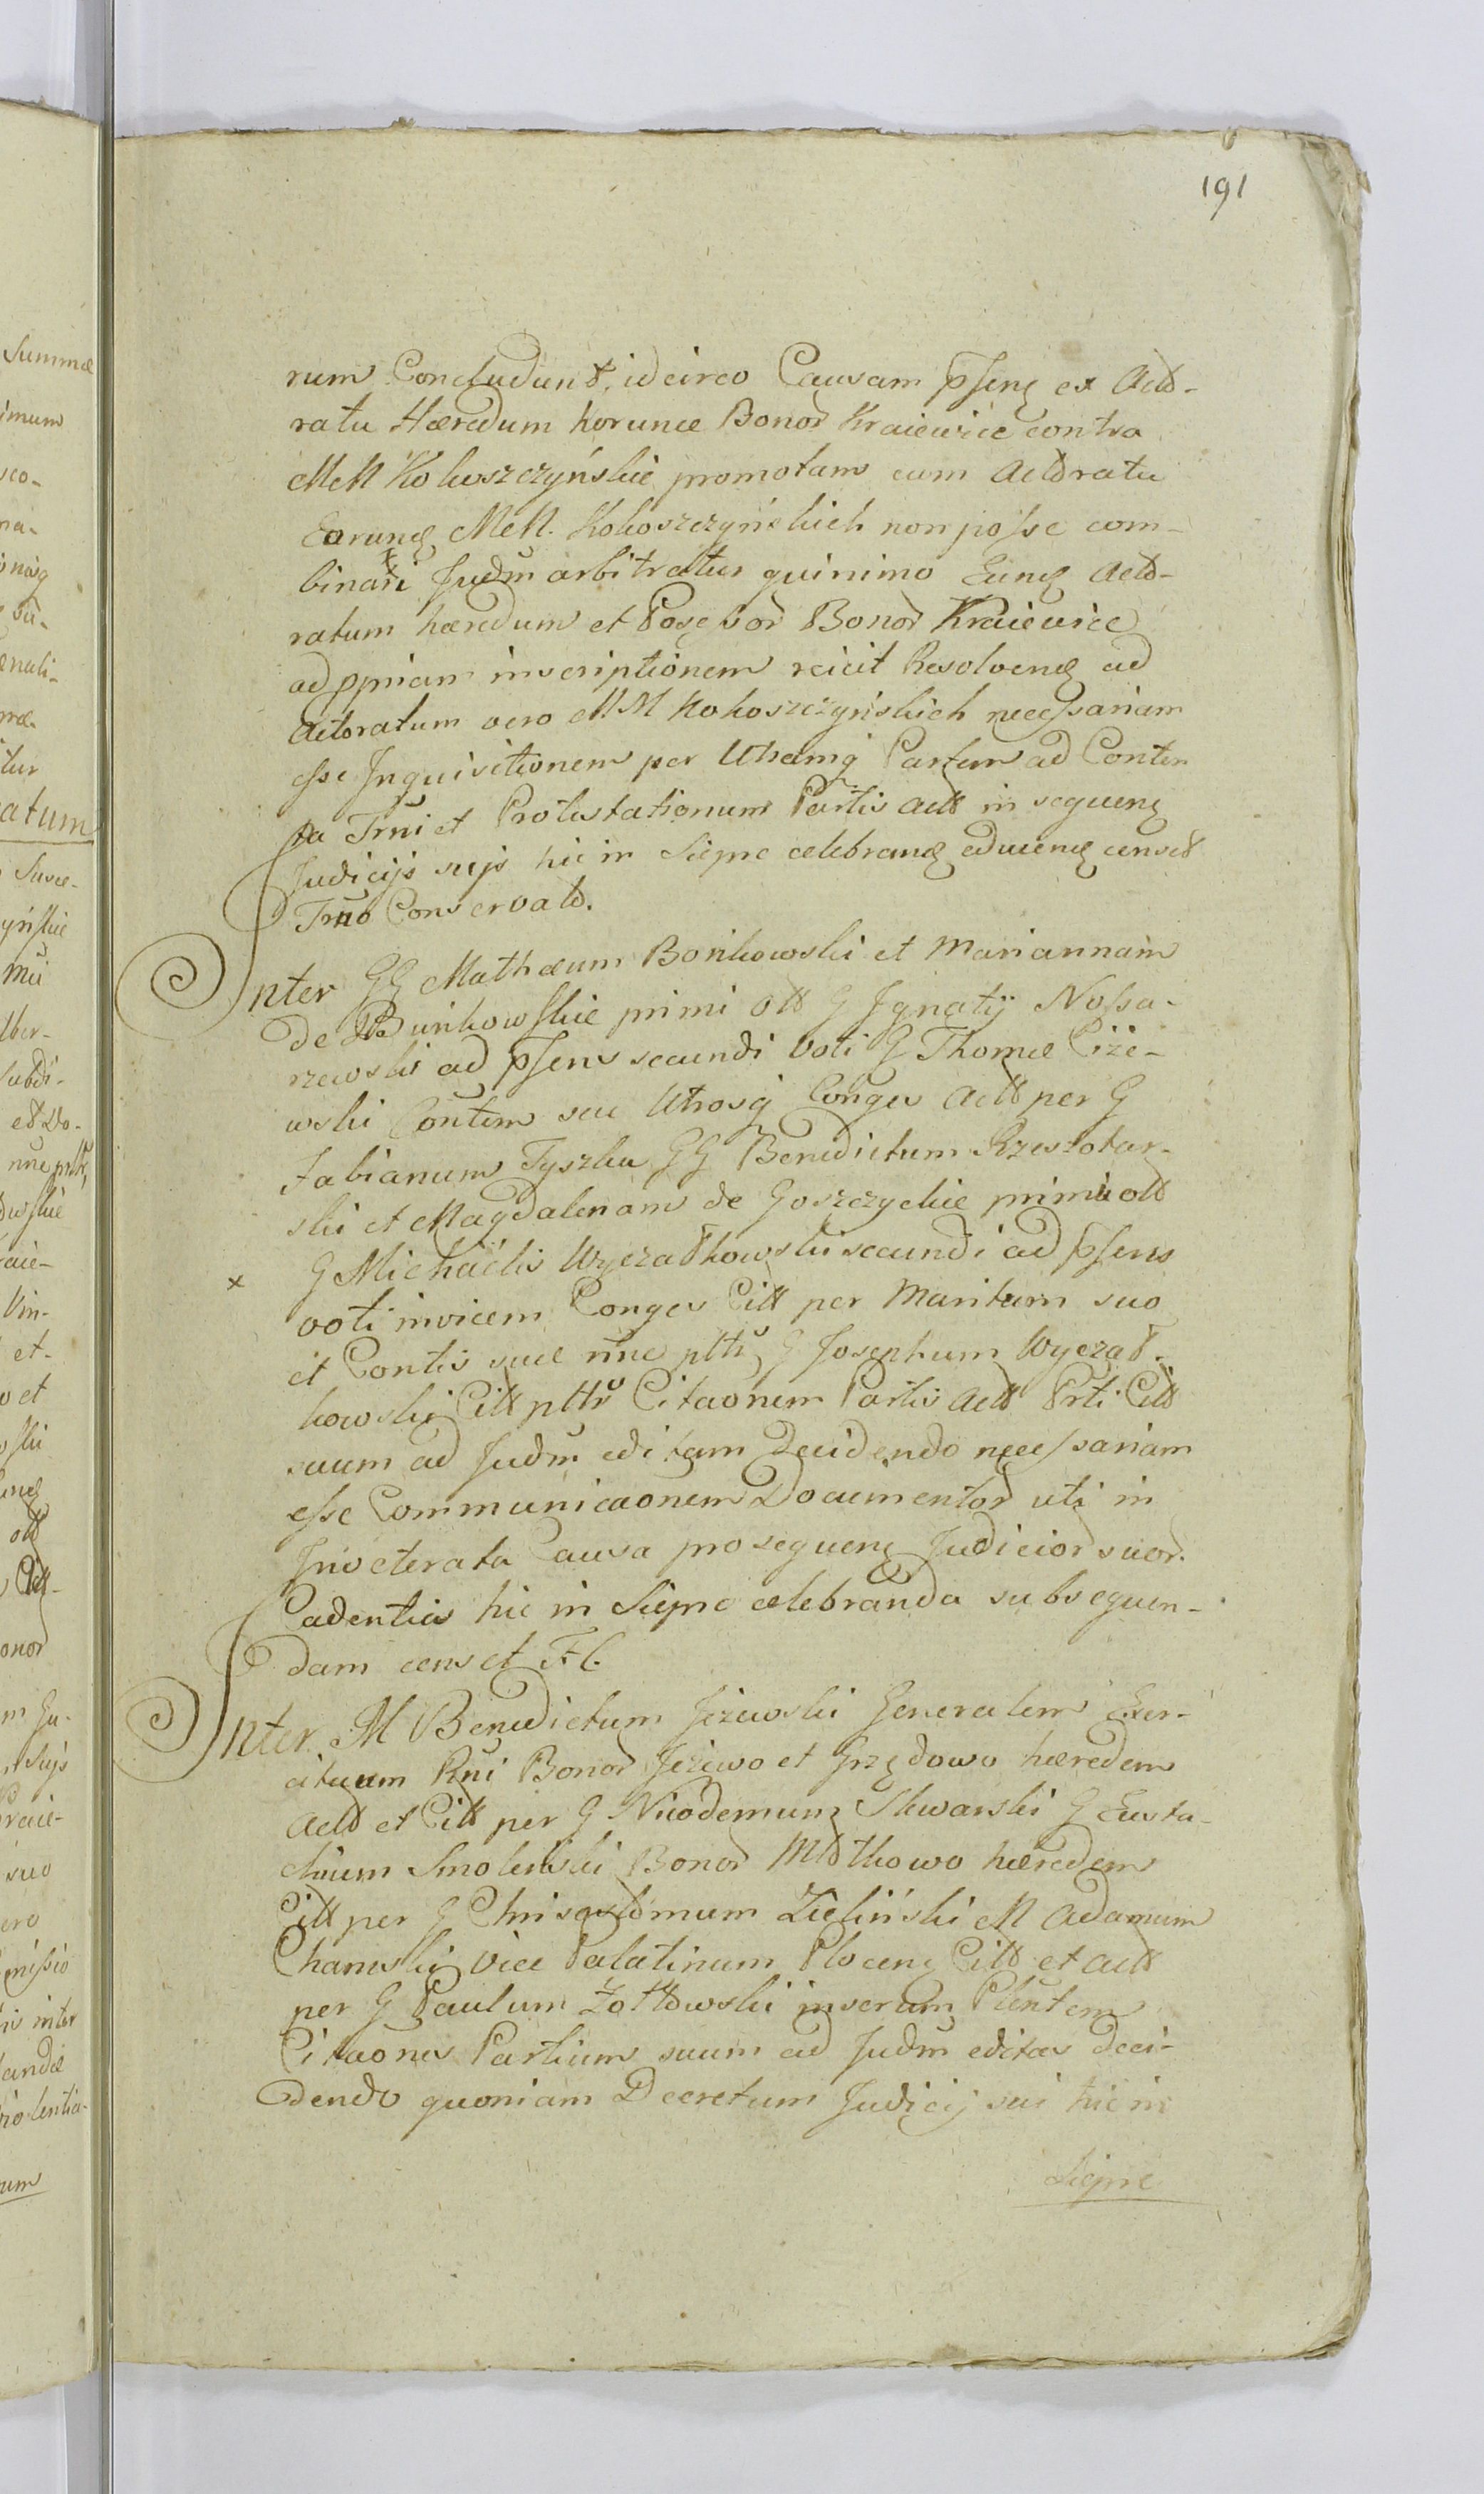 191
rum Concludunt, idcirco Causam pnsenę ex Acto-
ratu Hæredum horunce Bonoꝝ Kraiewice contra
MM Kokoszczyńskie promotam cum Actoratu
Earundę MM. Kokoszczyńskich non posse com-
binari Judm arbitratur quinimo Eundę Acto-
ratum hæredum et Posessoꝝ Bonoꝝ Kraiewice
ad ppriam inscriptionem reicit Resolvendę ad
Actoratum vero MM Kokoszczyńskich necessariam
esse Inquisitionem per Utramq Partem ad Conten
ta Trni et Protestationum Partis Actt in sequenę
Judicijs suis hic in Sierpc celebrandę educendę censet
Trno Conservato.
Inter GG Mathæum Bońkowski et Mariannam
de Buńkowskie primi olt G Ignatij Nossa-
rzewski ad pnsens secundi voti G Thomæ Ciże-
wski Contem seu Utrosq Conges Actt per G
Fabianum Tyszka GG Benedictum Rzeszotar-
ski et Magdalenam de Goszczyckie primi olt
x G Michaelis Wyczałkowski secundi ad pnsens
voti invicem Conges Citt per Maritum suo
et Contis suæ nne pltr G Josephum Wyczał-
kowski Citt pltr Citaonem Partis Actt Prti Citt
suum ad Judm editam Decidendo necessariam
esse Communicaonem Documentoꝝ uti in
Inveterata Causa pro sequenę Judicioꝝ suoꝝ.
Cadentia hic in Sierpc celebranda subsequen-
dam censet T. C.
Inter M Benedictum Jeżewski Generalem Exer-
cituum Rni Bonoꝝ Jeżewo et Grzędowo hæredem
Actt et Citt per G Nicodemum Skwarski G Eusta-
chium Smoleński Bonoꝝ Młotkowo hæredem
Citt per G Chrisostomum Zieliński M Adamum
Chamski Vice Palatinum Plocenę Citt et Actt
per G Paulum Żołtowski inserum Plentem
Citaones Partium suum ad Judm editas Deci-
dendo quoniam Decretum Judicij sui hic in
Sierpc